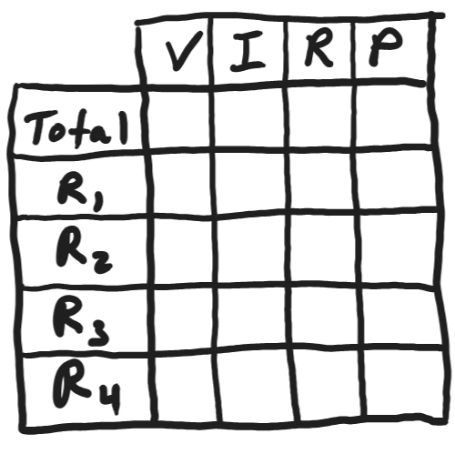 V I R P
Total
R₁
R₂
R₃
R₄